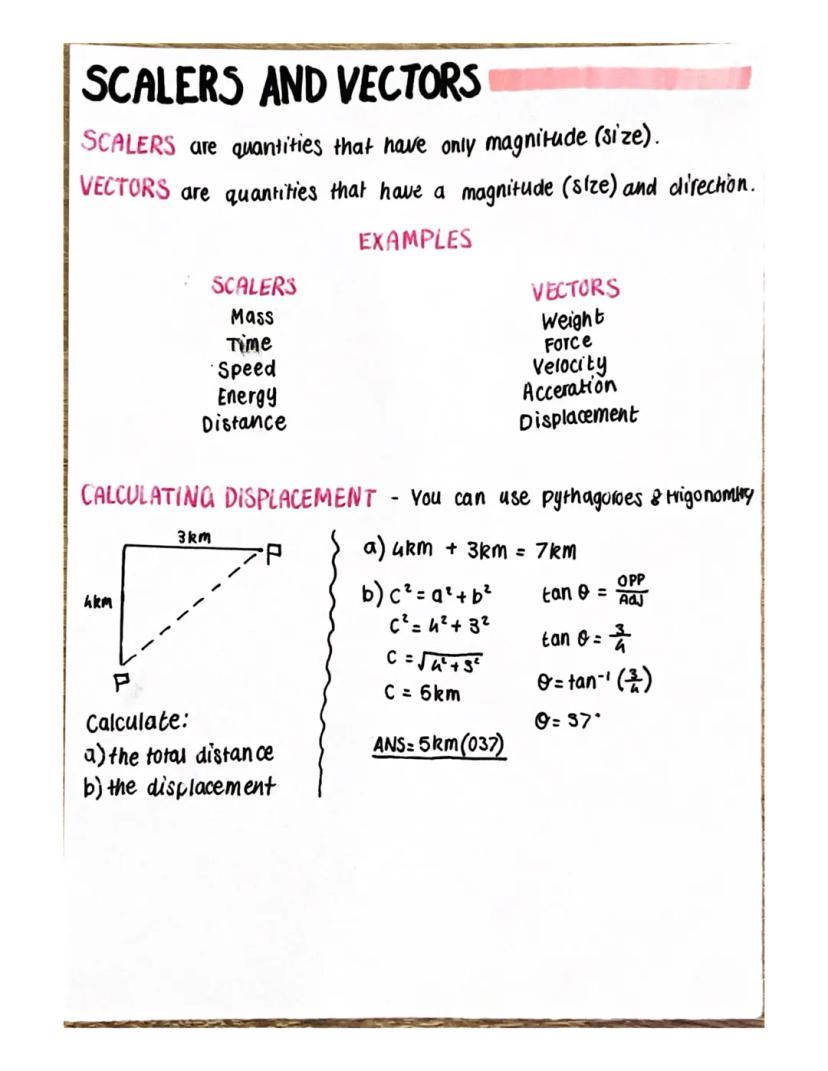 SCALERS AND VECTORS
SCALERS are quantities that have only magnitude (size).
VECTORS are quantities that have a magnitude (size) and direction.
EXAMPLES
SCALERS
Mass
Time
Speed
Energy
Distance
VECTORS
Weight
Force
Velocity
Acceration
Displacement
CALCULATING DISPLACEMENT - You can use pythagoroes & trigonomtry
3km
4km
P
P
Calculate:
a) the total distance
b) the displacement
a) 4km + 3km = 7km
b) c² = a² + b²
c² = 4² + 3²
c = √4² + 3²
c = 5km
ANS = 5km (037)
tan θ = OPP/ADJ
tan θ = 3/4
θ = tan⁻¹ (3/4)
θ = 37°